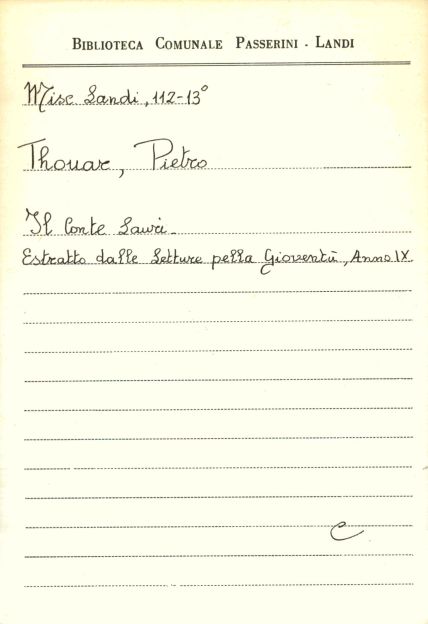 BIBLIOTECA COMUNALE PASSERINI - LANDI
Misc Landi, 112-13°
Thouar, Pietro
Il Conte Lauri.
Estratto dalle Letture pella Gioventù, Anno IX.
C